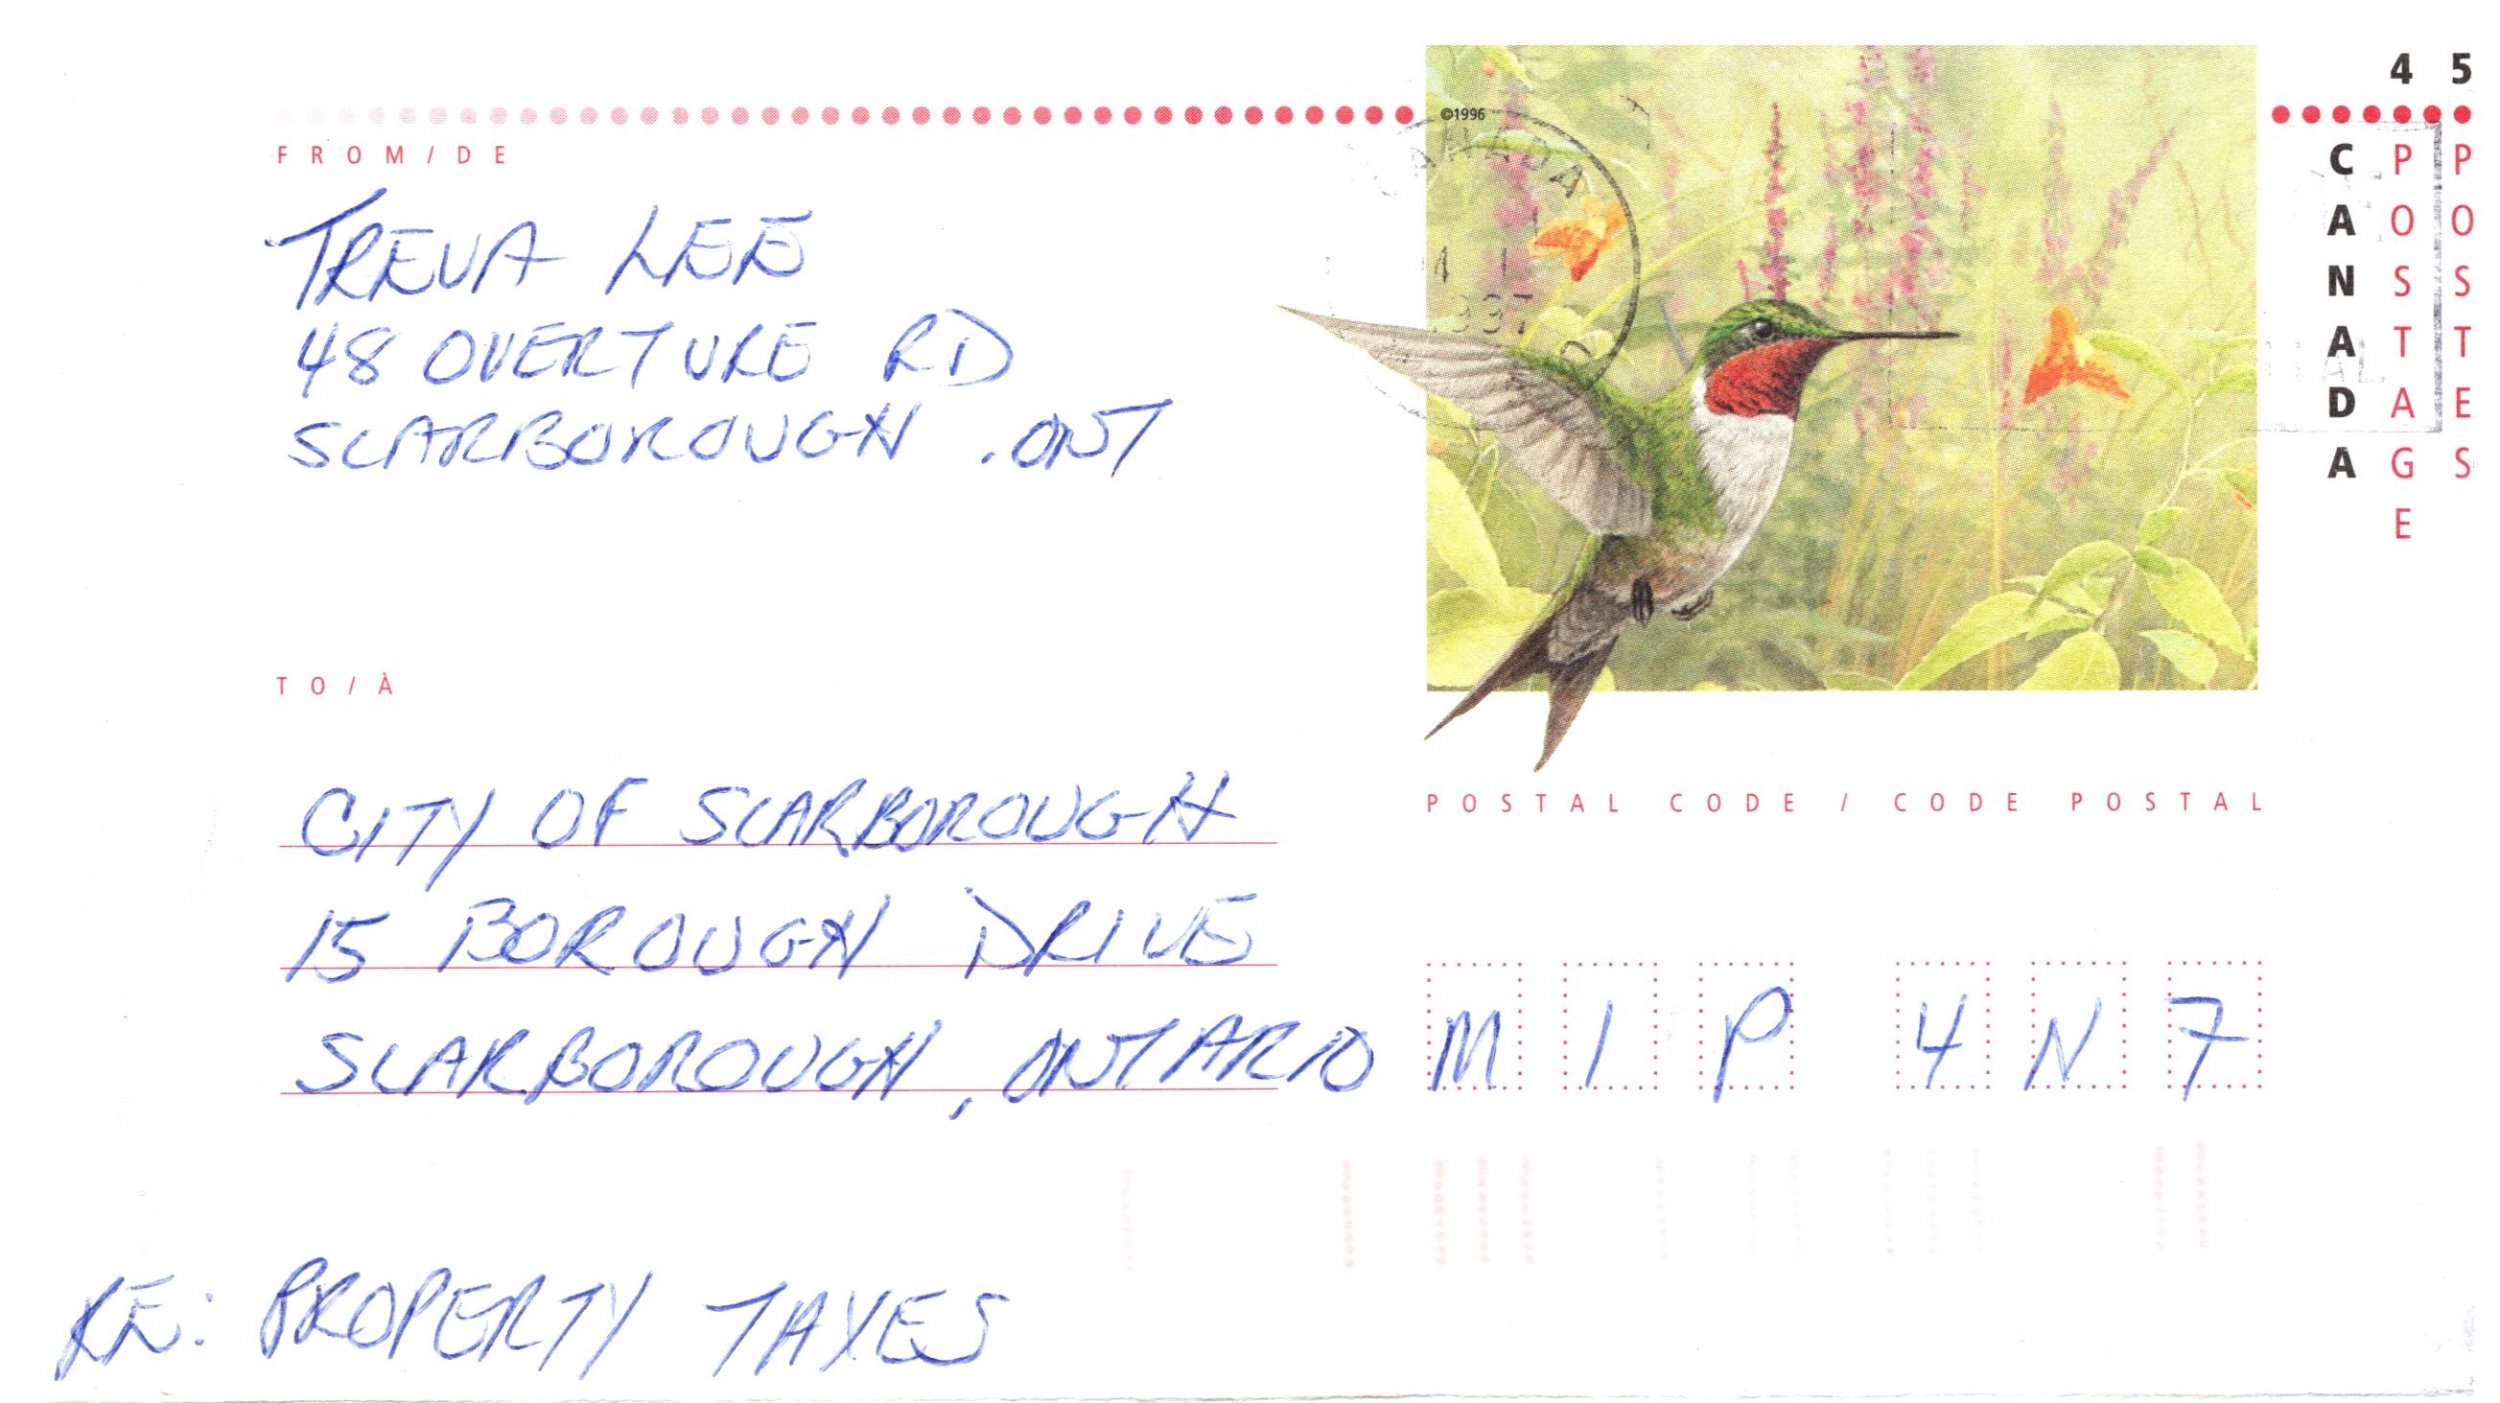 45
©1996
FROM/DE
CANADA
POSTAGE
POSTES
CANADA
TREVA LEE
48 OVERTURE RD
SCARBOROUGH . ONT
1997
TO/À
POSTAL CODE / CODE POSTAL
CITY OF SCARBOROUGH
15 BOROUGH DRIVE
SCARBOROUGH, ONTARIO M1P 4N7
RE: PROPERTY TAXES